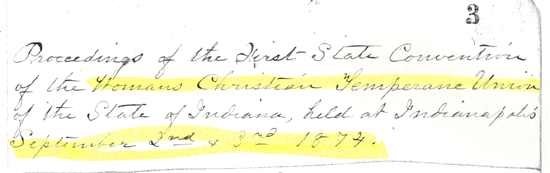 3
Proceedings of the First State Convention
of the Womans Christian Temperanc Union
of the State of Indiana, held at Indianapolis
September 2nd & 3rd 1874.